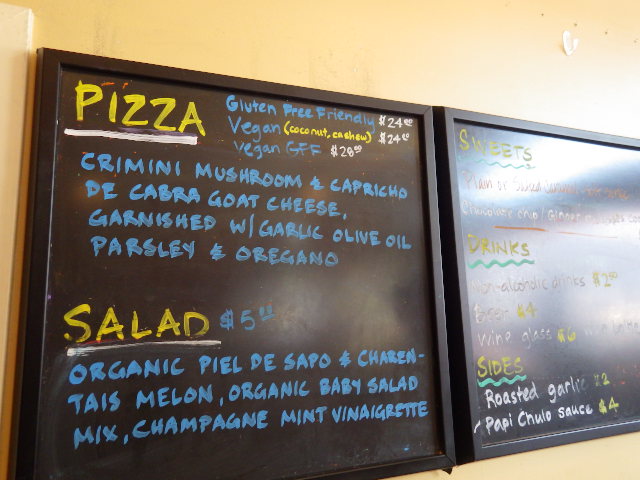 PIZZA
Gluten Free Friendly $24.00
Vegan (coconut, cashew) $24.00
Vegan GFF $28.00
CRIMINI MUSHROOM & CAPRICHO
DE CABRA GOAT CHEESE,
GARNISHED W/ GARLIC OLIVE OIL
PARSLEY & OREGANO
SALAD $5.00
ORGANIC PIEL DE SAPO & CHAREN-
TAIS MELON, ORGANIC BABY SALAD
MIX, CHAMPAGNE MINT VINAIGRETTE
SWEETS
Plain or Salted
Chocolate chip / Ginger
DRINKS
Non-alcoholic drinks $2.00
Beer $4
Wine glass $6
SIDES
Roasted garlic $2
Papi Chulo sauce $4